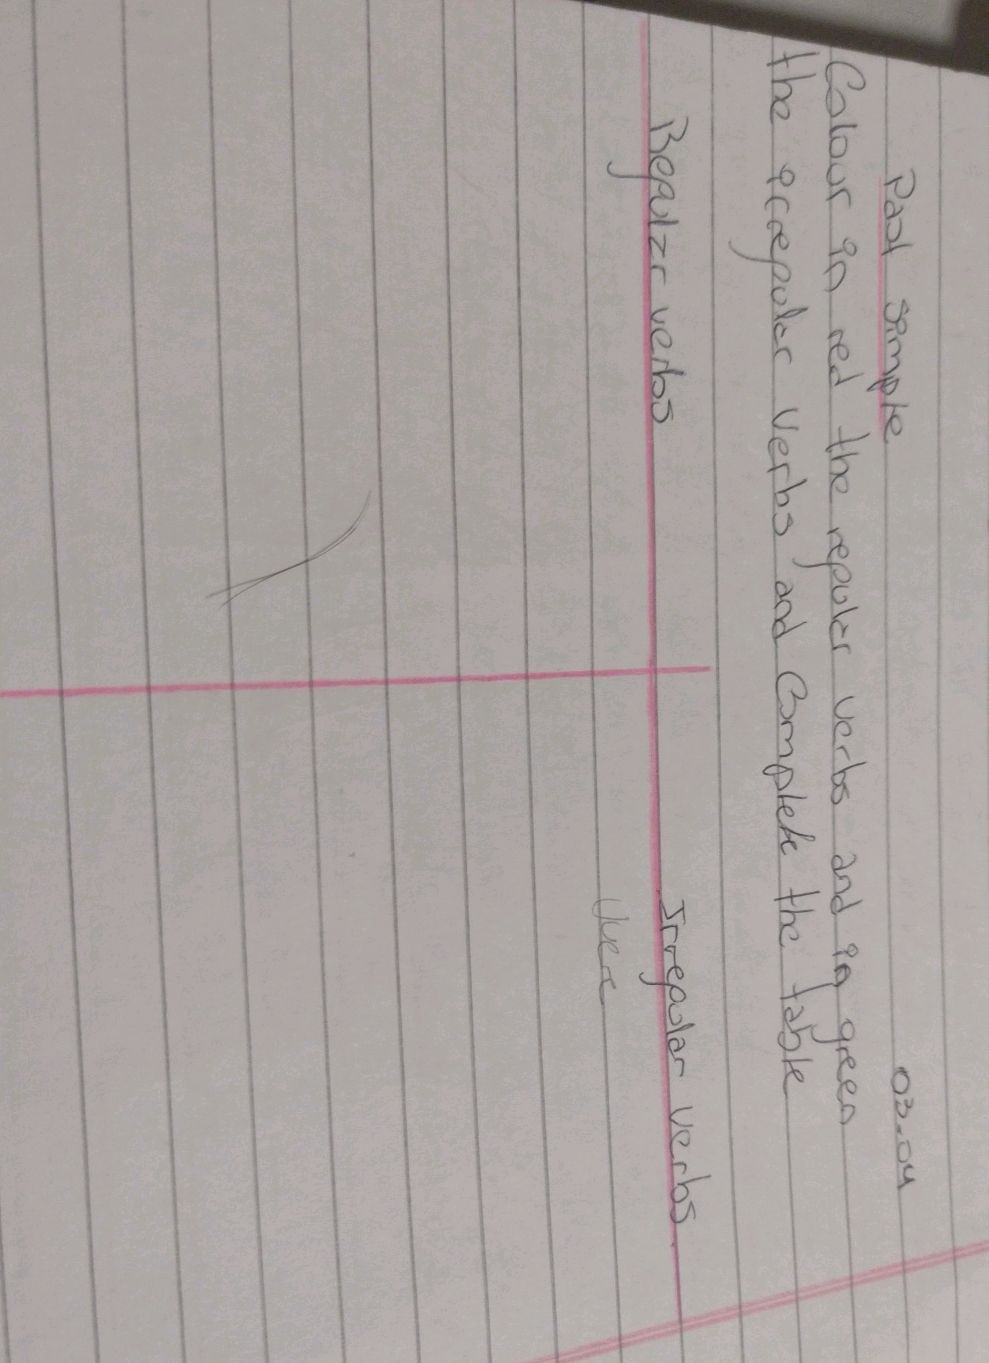 Past simple 03.04
Colour in red the repular verbs and in green
the irrepular verbs and complete the table
Repular verbs Irrepular verbs